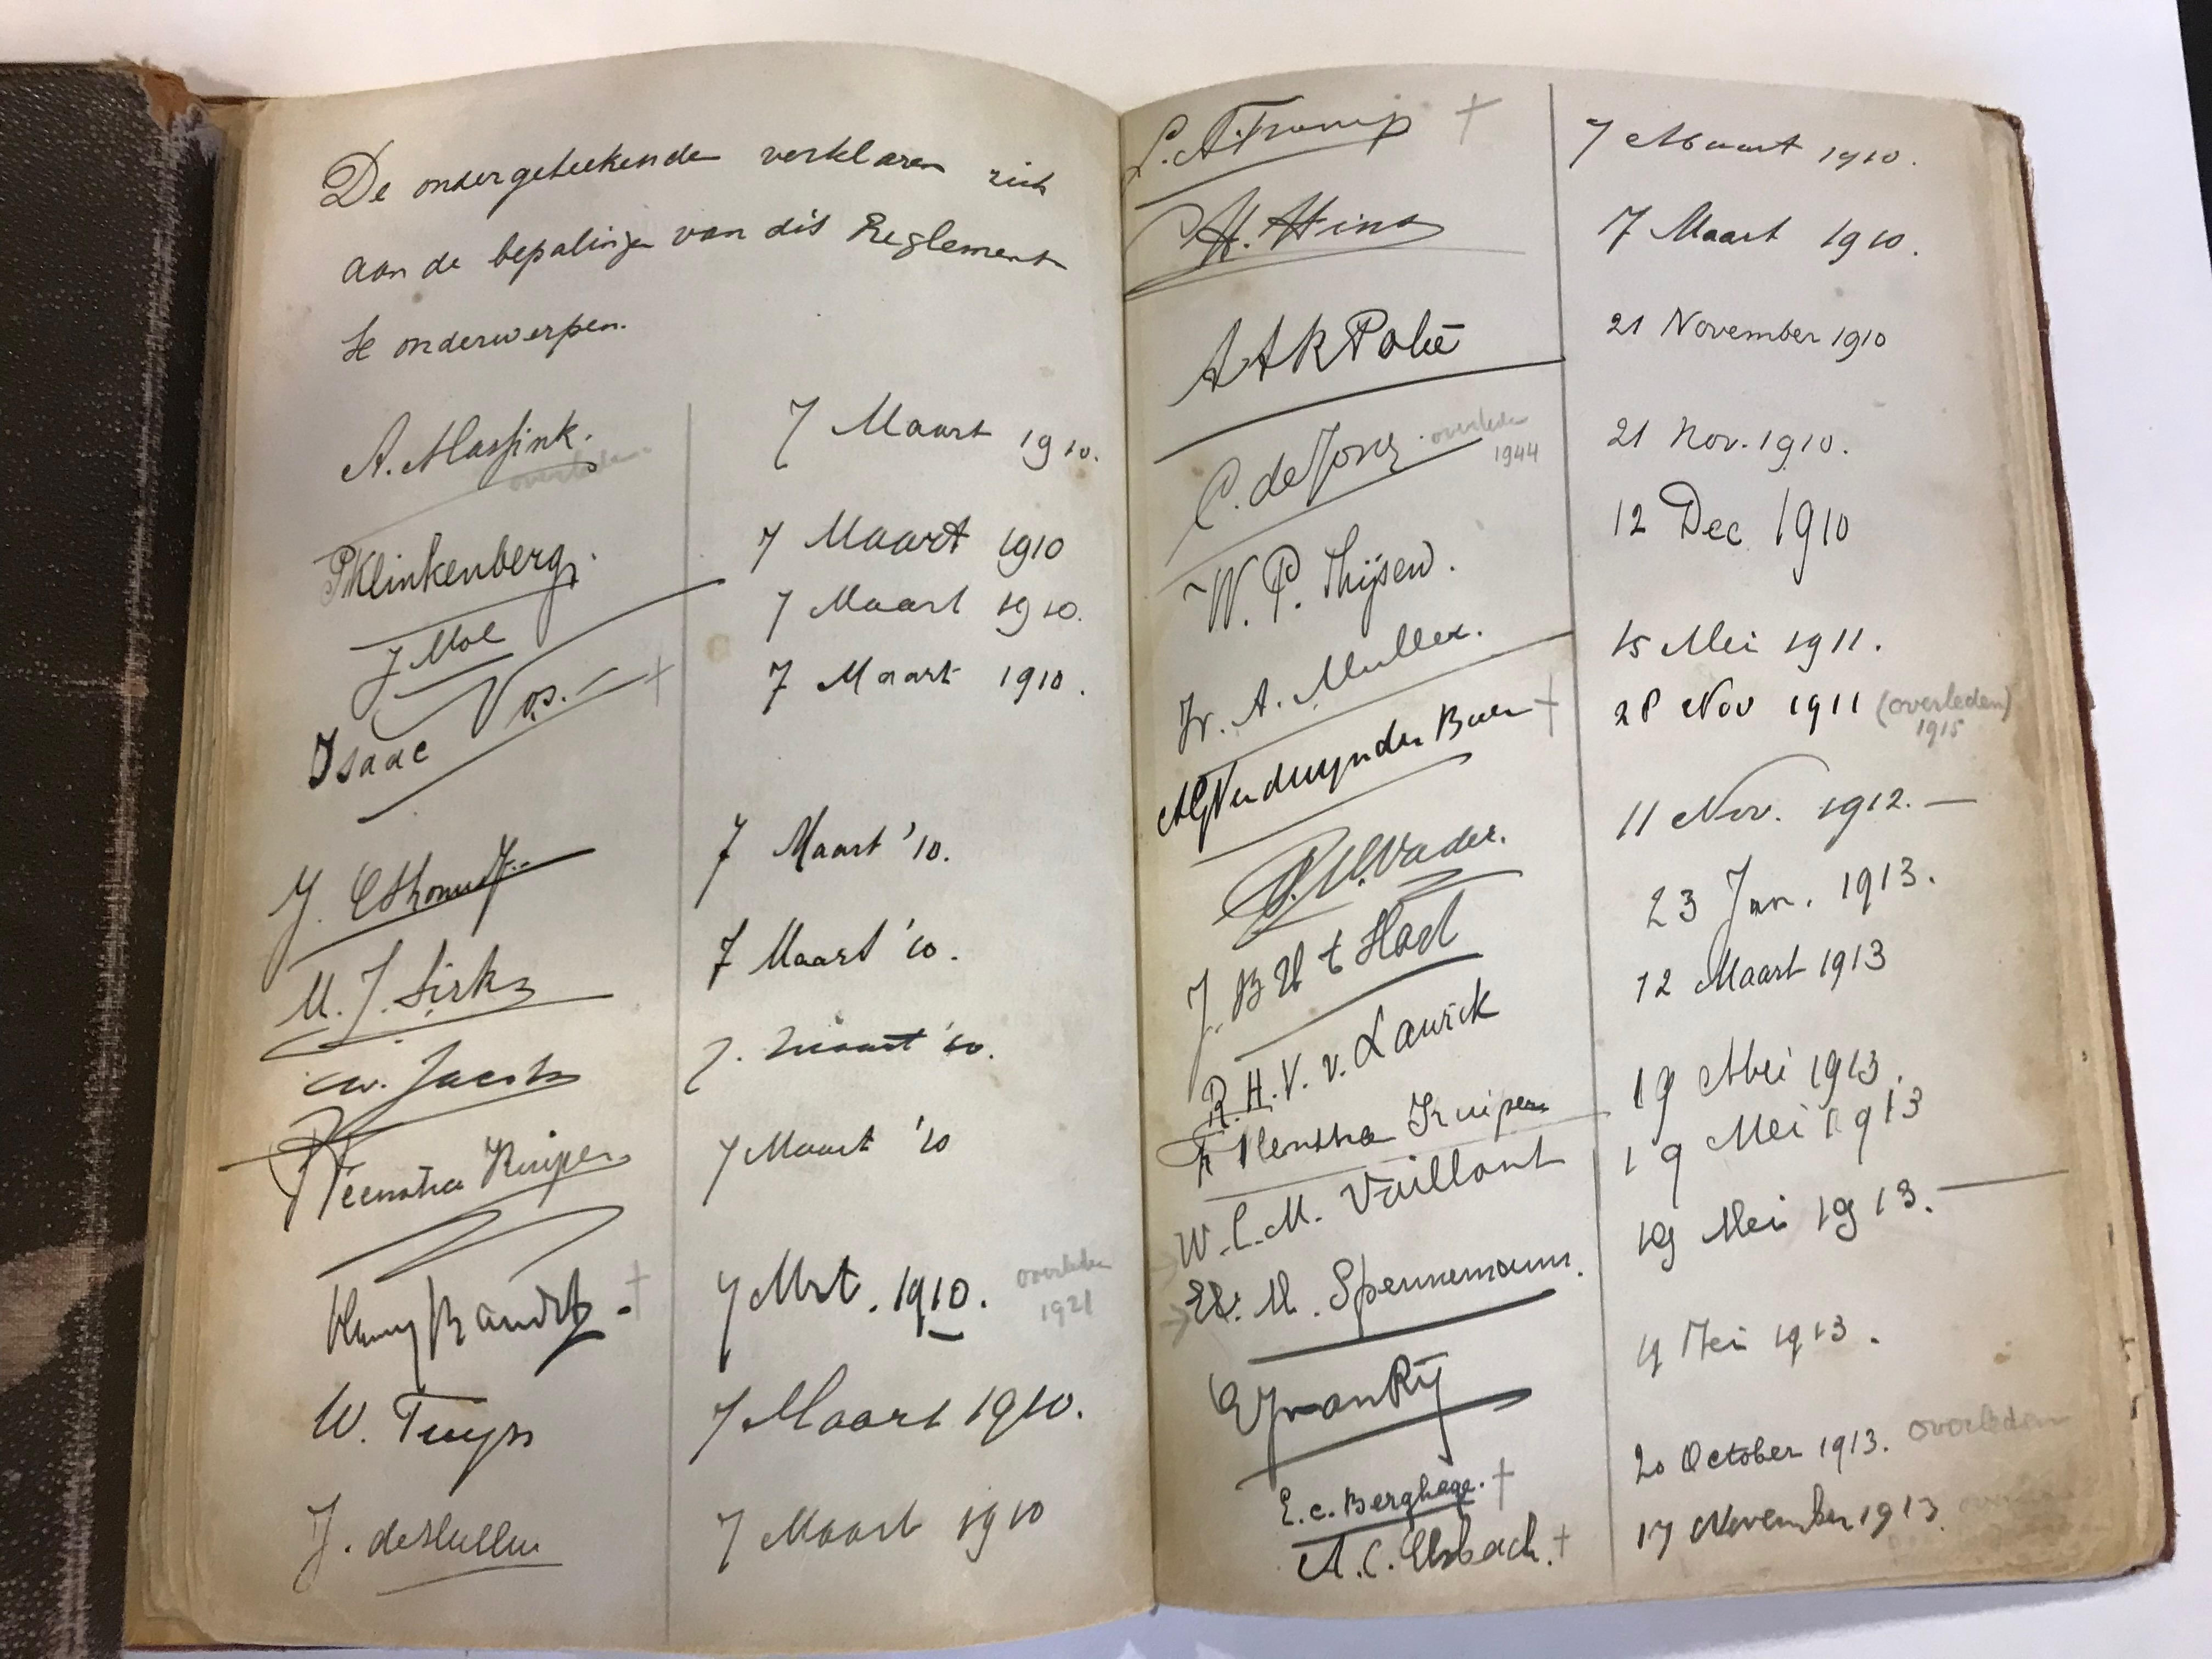 De ondergeteekenden verklaren zich
aan de bepalingen van dit Reglement
te onderwerpen.
A. Massink. 7 Maart 1910.
overleden
P Klinkenberg. 7 Maart 1910
J Mol 7 Maart 1910.
Isaac Vos. † 7 Maart 1910.
J. 7 Maart '10.
M. J. Sirks 7 Maart '10.
W. Jacobs 7. Maart '10.
Feenstra Kuiper 7 Maart '10
Henry Brandts † 7 Mrt. 1910. overleden
1921
W. Tuyn 7 Maart 1910.
J. de Hullu 7 Maart 1910
7 Maart 1910.
H. 7 Maart 1910.
A A K Polu 21 November 1910
C. de Jong. overleden 21 Nov. 1910.
1944
W. P. Thijsen. 12 Dec 1910
Fr. A. Muller. 15 Mei 1911.
AG Verduynden Boer † 28 Nov 1911 (overleden)
1915
P. W. Vader. 11 Nov. 1912. —
J. B. U t Hart 23 Jan. 1913.
R. H. V. v. Lawick 12 Maart 1913
Feenstra Kuiper 19 Mei 1913.
W. C. M. Vaillant 19 Mei 1913
M. Spennemann. 19 Mei 1913. —
EJ van Rij 19 Mei 1913.
E. C. Berghege. † 20 October 1913. overleden
A. C. Elsbach. † 17 November 1913.